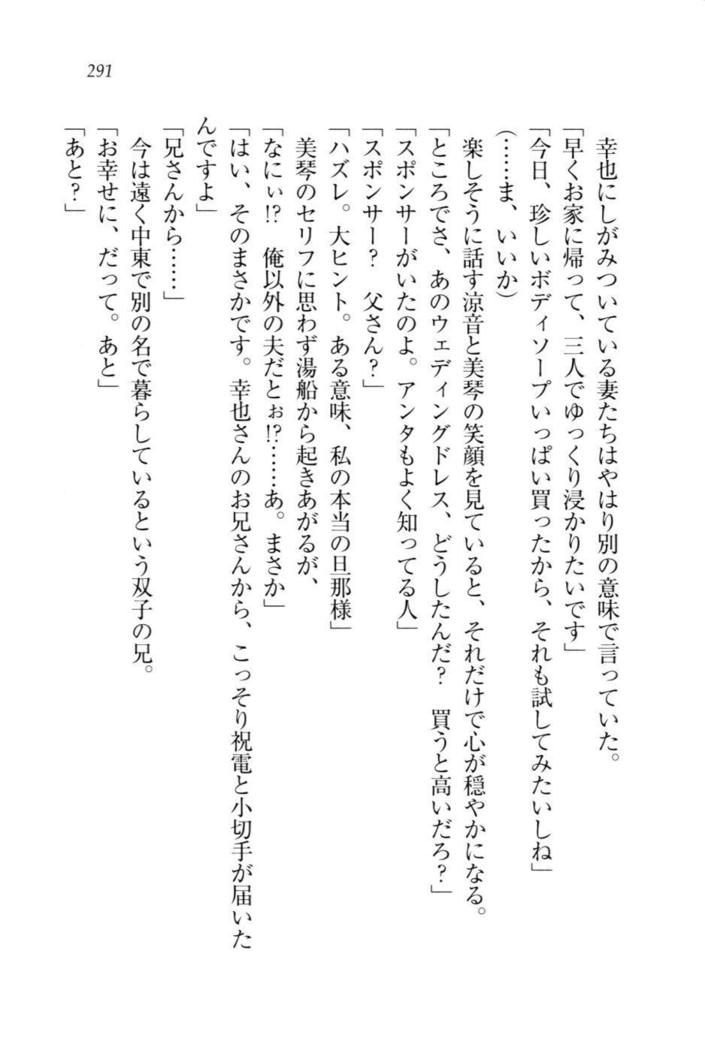 291
幸也にしがみついている妻たちはやはり別の意味で言っていた。
「早くお家に帰って、三人でゆっくり浸かりたいです」
「今日、珍しいボディソープいっぱい買ったから、それも試してみたいしね」
(……ま、いいか)
楽しそうに話す涼音と美琴の笑顔を見ていると、それだけで心が穏やかになる。
「ところでさ、あのウェディングドレス、どうしたんだ？　買うと高いだろ？」
「スポンサーがいたのよ。アンタもよく知ってる人」
「スポンサー？　父さん？」
「ハズレ。大ヒント。ある意味、私の本当の旦那様」
美琴のセリフに思わず湯船から起きあがるが、
「なにぃ!?　俺以外の夫だとぉ!?……あ。まさか」
「はい、そのまさかです。幸也さんのお兄さんから、こっそり祝電と小切手が届いた
んですよ」
「兄さんから……」
今は遠く中東で別の名で暮らしているという双子の兄。
「お幸せに、だって。あと」
「あと？」